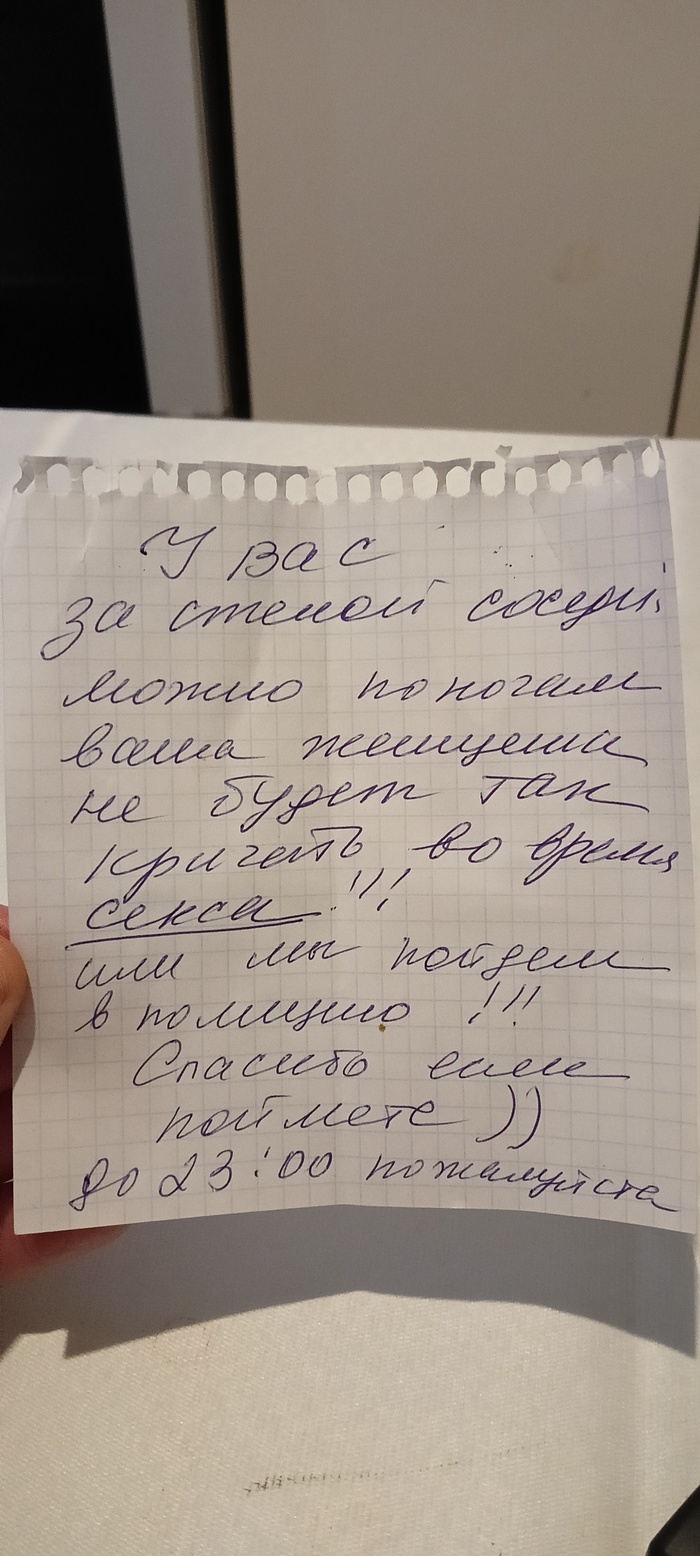 У вас
за стеной соседи,
можно по ночам
ваша женщина
не будет так
кричать во время
секса !!!
или мы пойдем
в полицию !!!
Спасибо если
поймете ))
до 23:00 пожалуйста